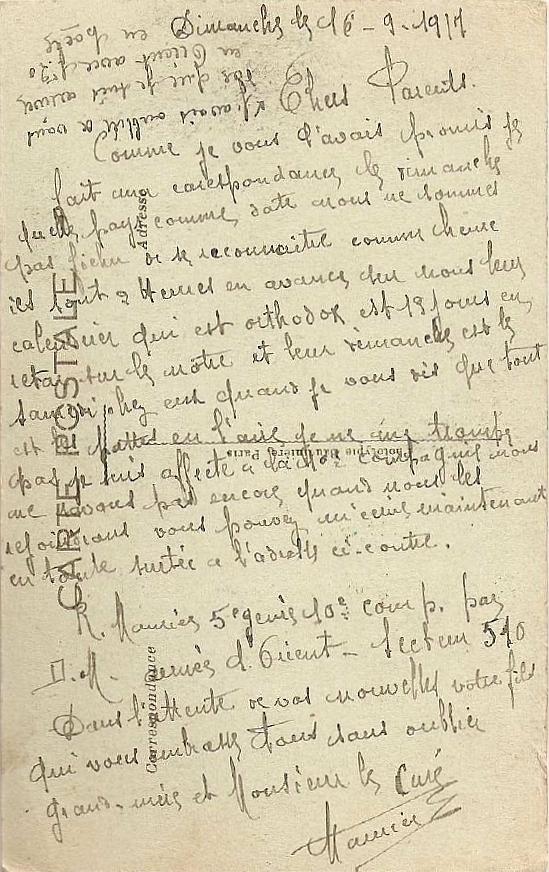 Dimanche le 16-9-1917
Chers Parents.
Comme je vous l'avais promis je
fait ma corespondance le dimanche
quelle pays comme date nous ne sommes
pas fichu de se reconnaitre comme heure
ils sont 2 Heures en avance sur nous leur
calendrier qui est orthodox est 13 jours en
retar sur le notre et leur dimanche est le
samedi chez eux quand je vous dis que tout
est les pattes en l'aire je ne me trompe
pas, je suis affecté a la 10e compagnie nous
ne savons pas encore quand nous les
rejoindrons vous pouvez m'ecrire maintenant
en toute surtée a l'adresse ci-contre.
R. Maurice 5e genie 10e comp. par
B.M. armée d'Orient - Secteur 510
Dans l'attente de vos nouvelles votre fils
qui vous embrasse tous sans oublier
grand-mère et Monsieur le Curé
Maurice
j'avais oublié a vous
dire que je suis arrivé
en Orient avec
en
CARTE POSTALE
Adresse
Correspondance
Phototypie Baudinière, Paris